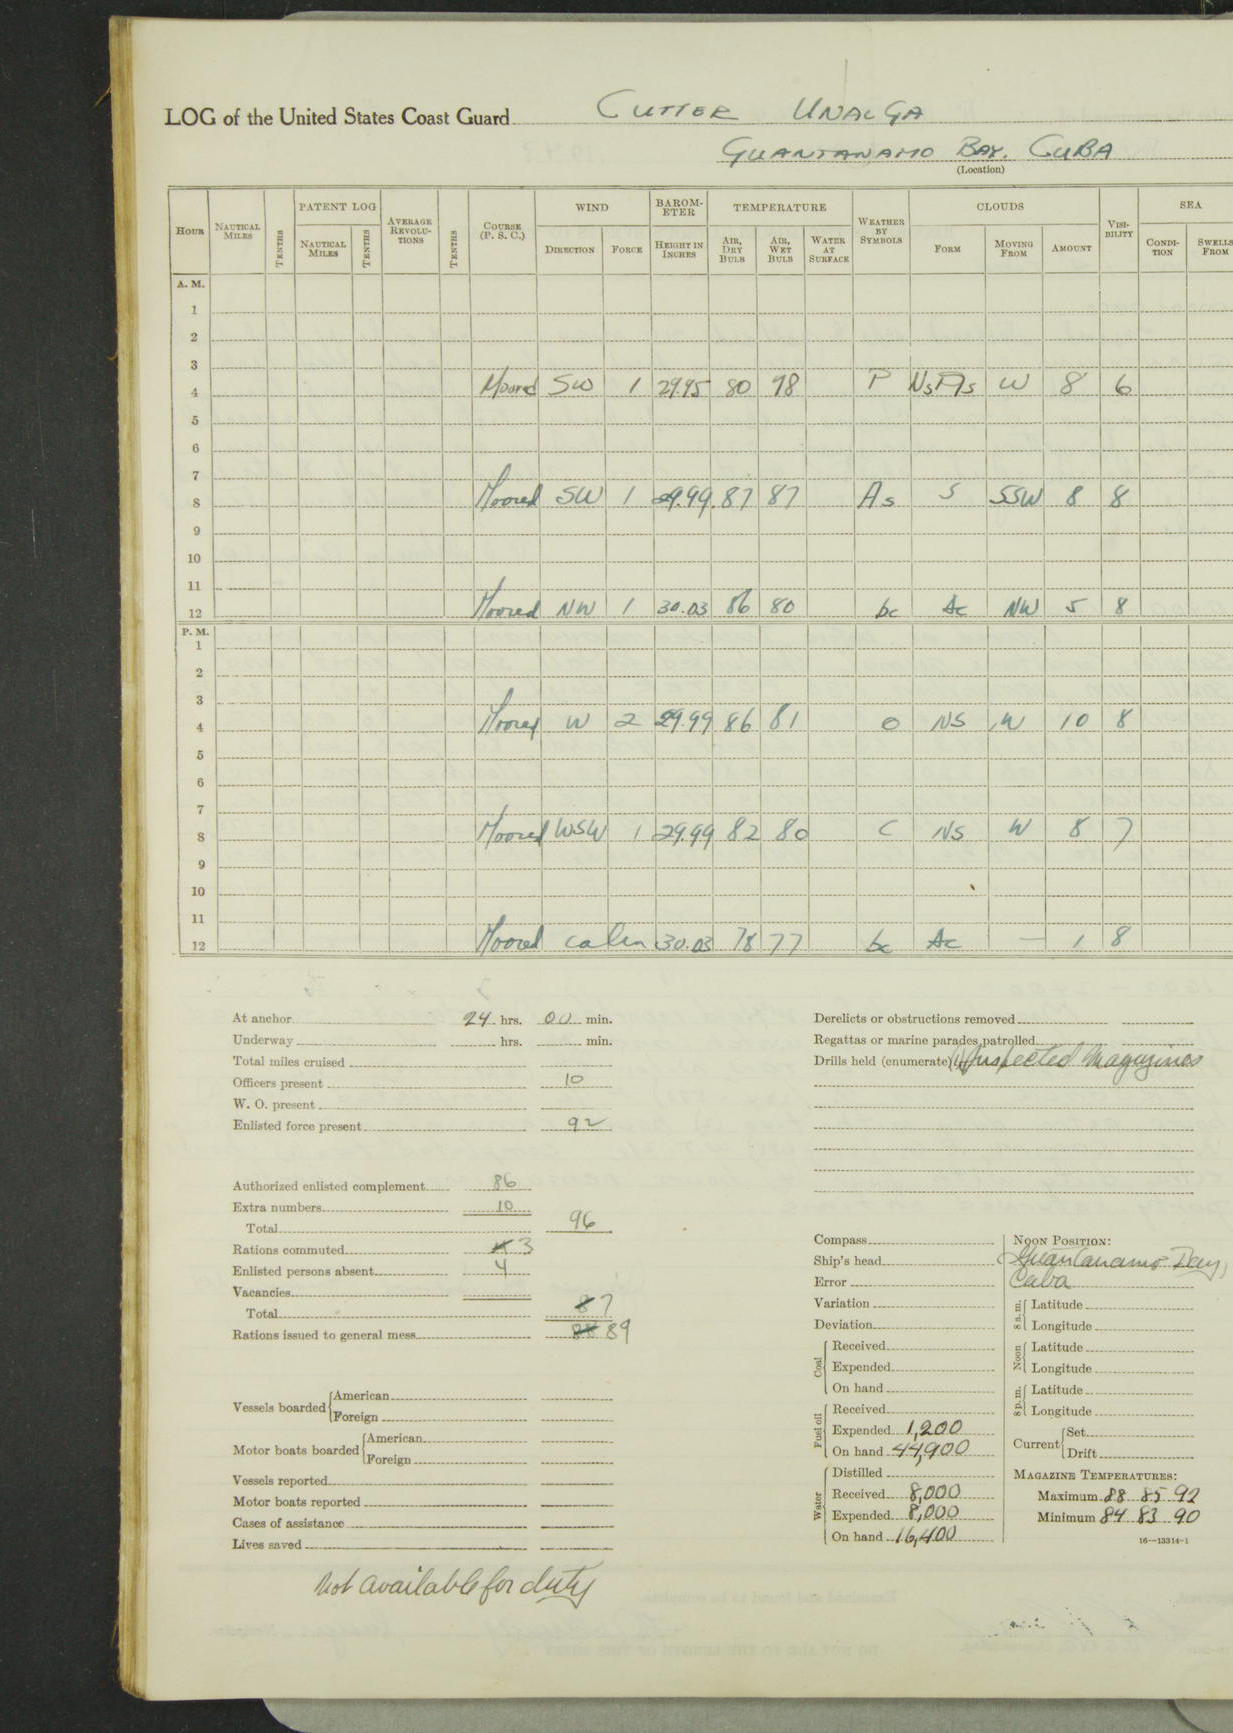 LOG of the United States Coast Guard CUTTER UNALGA
GUANTANAMO BAY. CUBA
(Location)
HOUR NAUTICAL MILES TENTHS PATENT LOG NAUTICAL MILES TENTHS AVERAGE REVOLU-TIONS TENTHS COURSE (P. S. C.) WIND DIRECTION FORCE BAROM-ETER HEIGHT IN INCHES TEMPERATURE AIR, DRY BULB AIR, WET BULB WATER AT SURFACE WEATHER BY SYMBOLS CLOUDS FORM MOVING FROM AMOUNT VISI-BILITY SEA CONDI-TION SWELLS FROM
A. M.
1
2
3
4 Moored SW 1 29.95 80 78 P NsAs W 8 6
5
6
7
8 Moored SW 1 29.99 87 87 As S SSW 8 8
9
10
11
12 Moored NW 1 30.03 86 80 bc Ac NW 5 8
P. M.
1
2
3
4 Moored W 2 29.99 86 81 O NS W 10 8
5
6
7
8 Moored WSW 1 29.99 82 80 C NS W 8 7
9
10
11
12 Moored calm 30.03 78 77 bc Ac — 1 8
At anchor 24 hrs. 00 min.
Underway hrs. min.
Total miles cruised
Officers present 10
W. O. present
Enlisted force present 92
Authorized enlisted complement 86
Extra numbers 10
Total 96
Rations commuted 3
Enlisted persons absent 4
Vacancies
Total 7
Rations issued to general mess 89
Vessels boarded American
Foreign
Motor boats boarded American
Foreign
Vessels reported
Motor boats reported
Cases of assistance
Lives saved
Not available for duty
Derelicts or obstructions removed
Regattas or marine parades patrolled
Drills held (enumerate) (1) Inspected Magazines
Compass
Ship's head
Error
Variation
Deviation
Coal Received
Expended
On hand
Fuel oil Received
Expended 1,200
On hand 44,900
Water Distilled
Received 8,000
Expended 8,000
On hand 16,400
NOON POSITION:
Guantanamo Bay,
Cuba
8 a. m. Latitude
Longitude
Noon Latitude
Longitude
8 p. m. Latitude
Longitude
Current Set
Drift
MAGAZINE TEMPERATURES:
Maximum 88 85 92
Minimum 84 83 90
16—13314-1